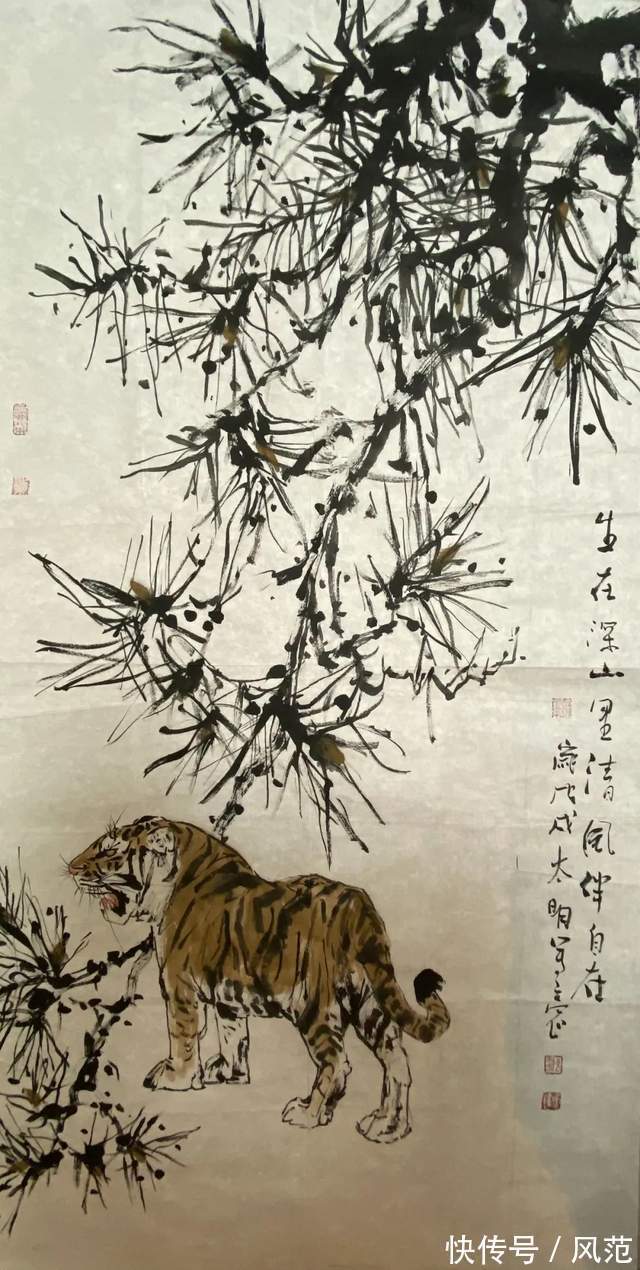 生在深山里清风伴自在
岁戊戌太明写之
快传号/风范